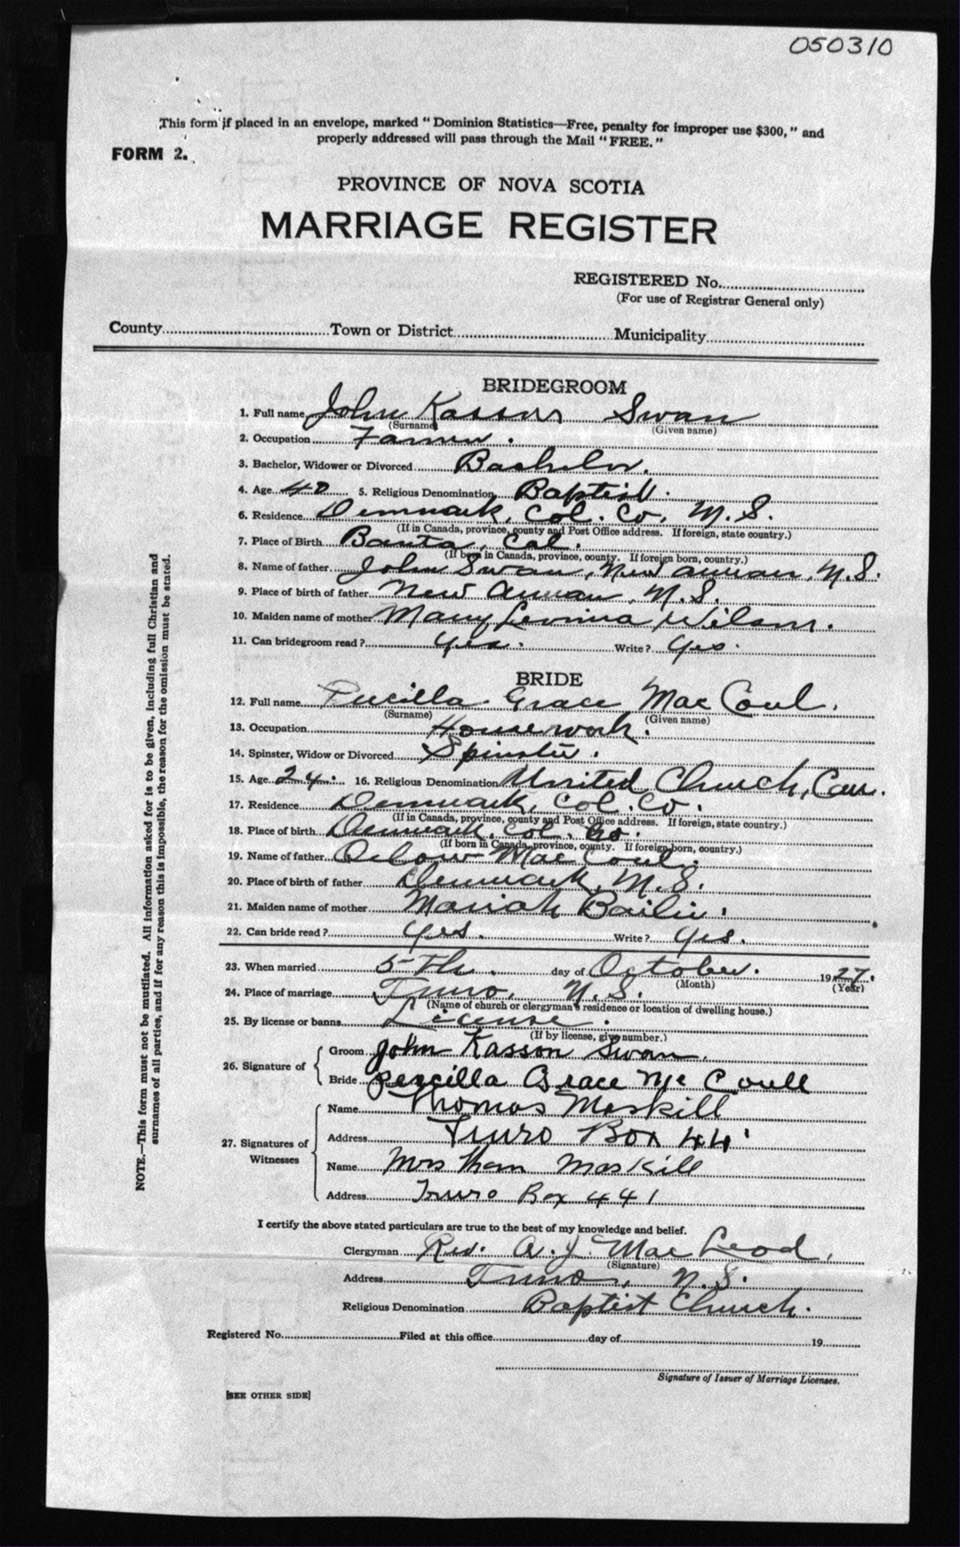 050310
This form if placed in an envelope, marked " Dominion Statistics—Free, penalty for improper use $300, " and
properly addressed will pass through the Mail " FREE. "
FORM 2.
PROVINCE OF NOVA SCOTIA
MARRIAGE REGISTER
REGISTERED No.
(For use of Registrar General only)
County Town or District Municipality
BRIDEGROOM
1. Full name John Kasson Swan
(Surname) (Given name)
2. Occupation Farmer.
3. Bachelor, Widower or Divorced Bachelor.
4. Age 40 5. Religious Denomination Baptist.
6. Residence Denmark, Col. Co, N.S.
(If in Canada, province, county and Post Office address. If foreign, state country.)
7. Place of Birth Banta, Cal.
(If born in Canada, province, county. If foreign born, country.)
8. Name of father John Swan, New Annan, N.S.
9. Place of birth of father New Annan, N.S.
10. Maiden name of mother Mary Levinia Wilson.
11. Can bridegroom read? Yes. Write? Yes.
BRIDE
12. Full name Pricilla Grace Mac Coul.
(Surname) (Given name)
13. Occupation Housework.
14. Spinster, Widow or Divorced Spinster.
15. Age 24. 16. Religious Denomination United Church, Can.
17. Residence Denmark, Col. Co.
(If in Canada, province, county and Post Office address. If foreign, state country.)
18. Place of birth Denmark, Col. Co.
(If born in Canada, province, county. If foreign born, country.)
19. Name of father Mac Coul.
20. Place of birth of father Denmark, N.S.
21. Maiden name of mother Mariah Bailie.
22. Can bride read? Yes. Write? Yes.
23. When married 5th. day of October. 1927.
(Month) (Year)
24. Place of marriage Truro, N.S.
(Name of church or clergyman's residence or location of dwelling house.)
25. By license or banns License.
(If by license, give number.)
26. Signature of
Groom John Kasson Swan.
Bride Percilla Grace Mc Coull
27. Signatures of Witnesses
Name Thomas Maskill
Address Truro Box 441
Name Mrs Thom Maskill
Address Truro Box 441
I certify the above stated particulars are true to the best of my knowledge and belief.
Clergyman Rev. A. J. Mac Leod.
(Signature)
Address Truro, N.S.
Religious Denomination Baptist Church.
Registered No. Filed at this office day of 19
Signature of Issuer of Marriage Licenses.
[SEE OTHER SIDE]
NOTE.—This form must not be mutilated. All information asked for is to be given, including full Christian and
surnames of all parties, and if for any reason this is impossible, the reason for the omission must be stated.